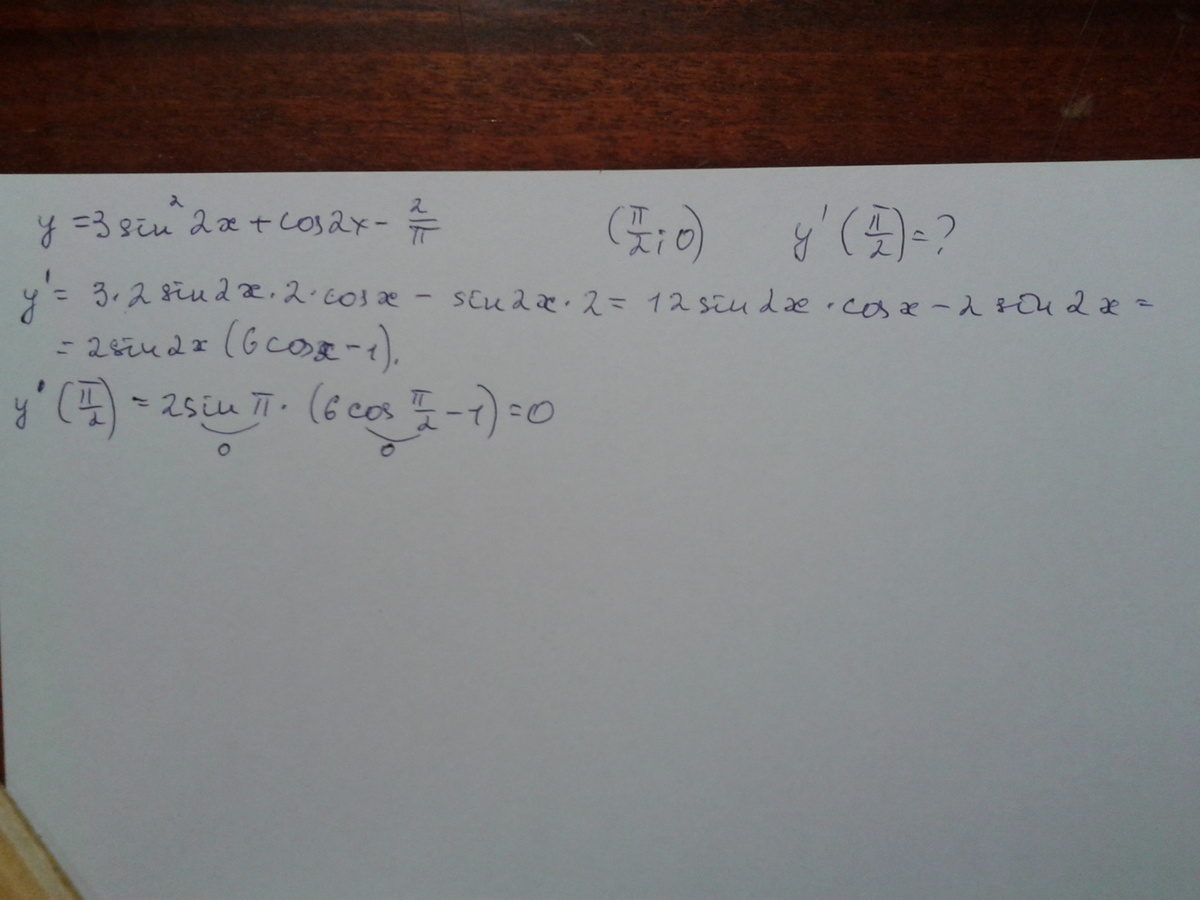 y = 3 sin² 2x + cos 2x − 2/π (π/2; 0) y'(π/2) = ?
y' = 3·2 sin 2x · 2 · cos x − sin 2x · 2 = 12 sin 2x · cos x − 2 sin 2x =
= 2 sin 2x (6 cos x − 1).
y'(π/2) = 2 sin π · (6 cos π/2 − 1) = 0
0 0